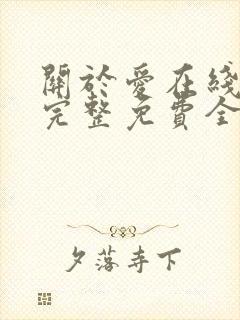 關於愛在綫
完整免費全
夕落寺下